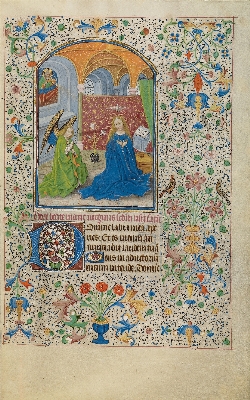 beate marie virginis
Domine labia mea ape
ries. Et os meum an
nunciabit laudem tua
Deus in adiutorium
meum intende. Domine